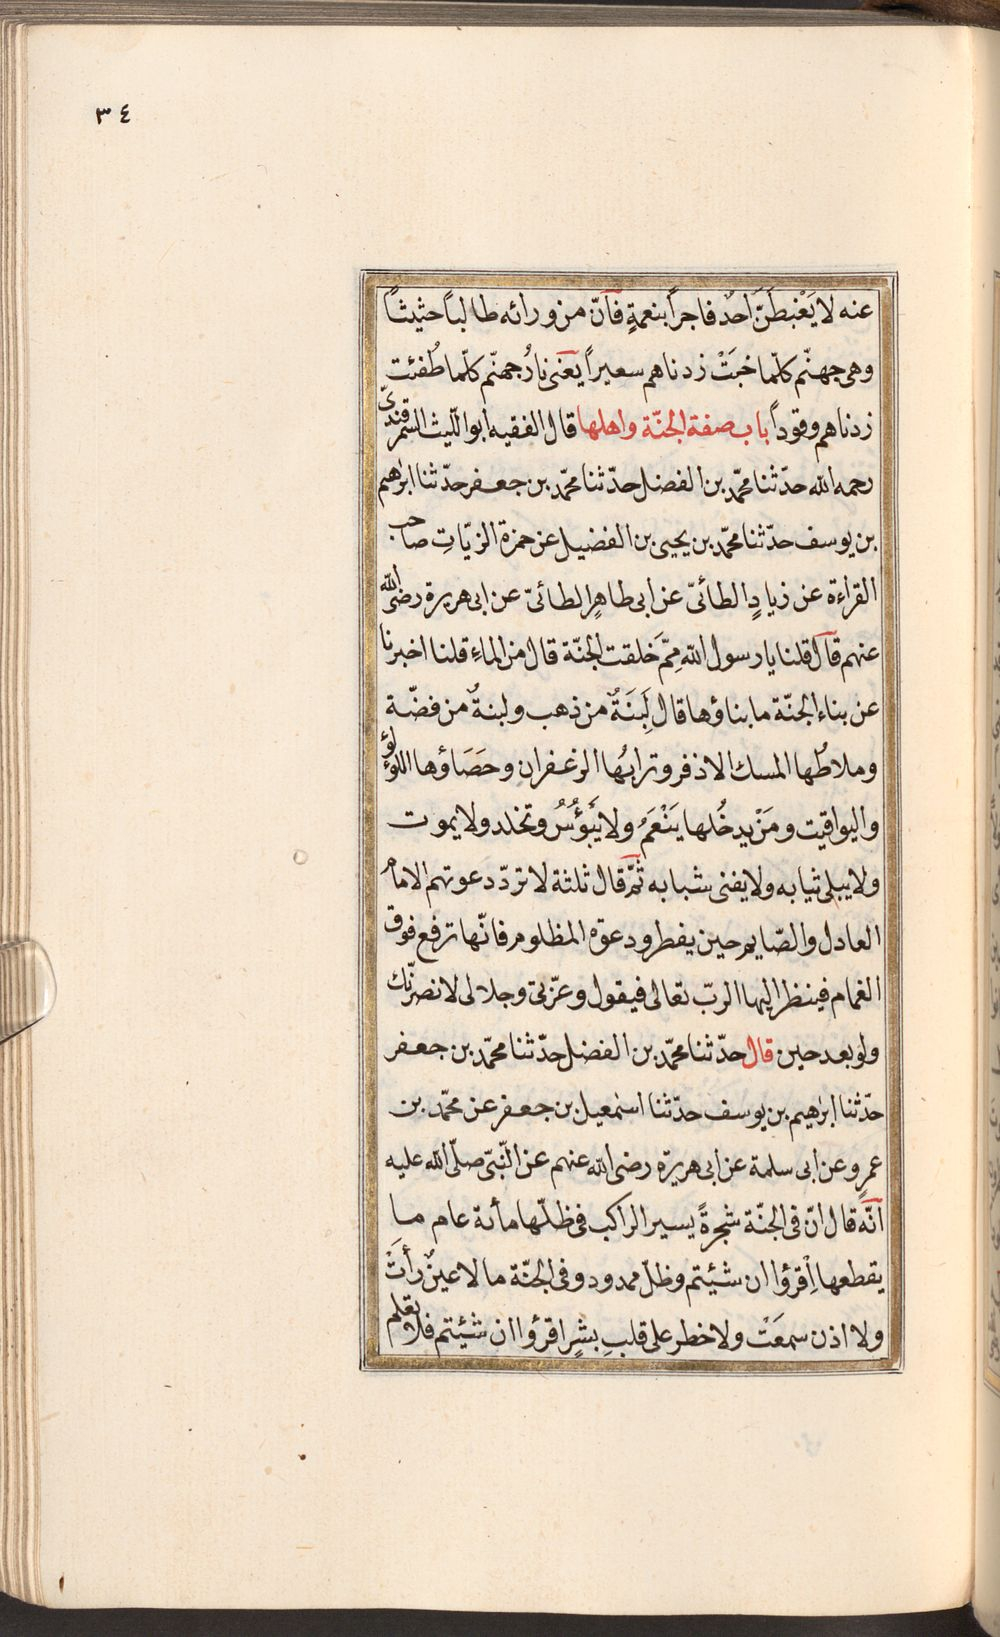 ٣٤
عنه لا يَغْبطَنَّ اَحدٌ فاجراً بنعمةٍ فاَنّ من ورائه طالباً حثيثاً
وهى جهنّم كلّما خبَتْ زدناهم سعيراً يعَنى نارُ جهنّم كلّما طُفئت
زدناهم وقوداً باب صفة الجنّة واهلها قال الفقيه ابو اللّيث السمرقندىّ
رحمه الله حدّثنا محمّد بن الفضل حدّثنا محمّد بن جعفر حدّثنا ابرٰهيم
بن يوسف حدّثنا محمّد بن يحيى بن الفضيل عن حمزة الزيّاتِ صاحب
القراءة عن زيادٍ الطائىّ عن ابى طاهرٍ الطائىّ عن ابى هريرة رضى الله
عنهم قاَل قلنا يا رسول الله مِمّ خلقت الجنّة قال من الماءِ قلنا اخبرنا
عن بناء الجنّة ما بناؤها قال لَبِنَةٌ من ذهب ولبنةٌ من فضّة
وملاطُها المسك الاذفر وترابُها الزعفران وحَصَاؤها اللؤلؤ
واليواقيت ومَنْ يدخُلها يَنْعَمُ ولا يَبْؤُسُ وتخلد ولا يموت
ولا يبلى ثيابه ولا يفنى شبابه ثمَّ قال ثلثة لا تردّ دعوتهم الامام
العادل والصّايم حين يفطر ودعوة المظلوم فانّها ترفع فوق
الغمام فينظر اليها الربّ تعالى فيقول وعزّتى وجلالى لانصرنّك
ولو بعد حين قال حدّثنا محمّد بن الفضل حدّثنا محمّد بن جعفر
حدّثنا ابرٰهيم بن يوسف حدّثنا اسمٰعيل بن جعفر عن محمّد بن
عمرٍو عن ابى سلمة عن ابى هريرة رضى الله عنهم عن النّبىّ صلّى الله عليه
اَنّه قال انّ فى الجنّة شجرةً يسير الراكب فى ظلّها مأىة عام ما
يقطعها اِقرؤا ان شئيتم وظلّ ممدود وفى الجنّة ما لا عينٌ رأَتْ
ولا اذن سمعَتْ ولا خطر على قلبِ بشرٍ اقرؤا ان شئيتم فلا تعلم